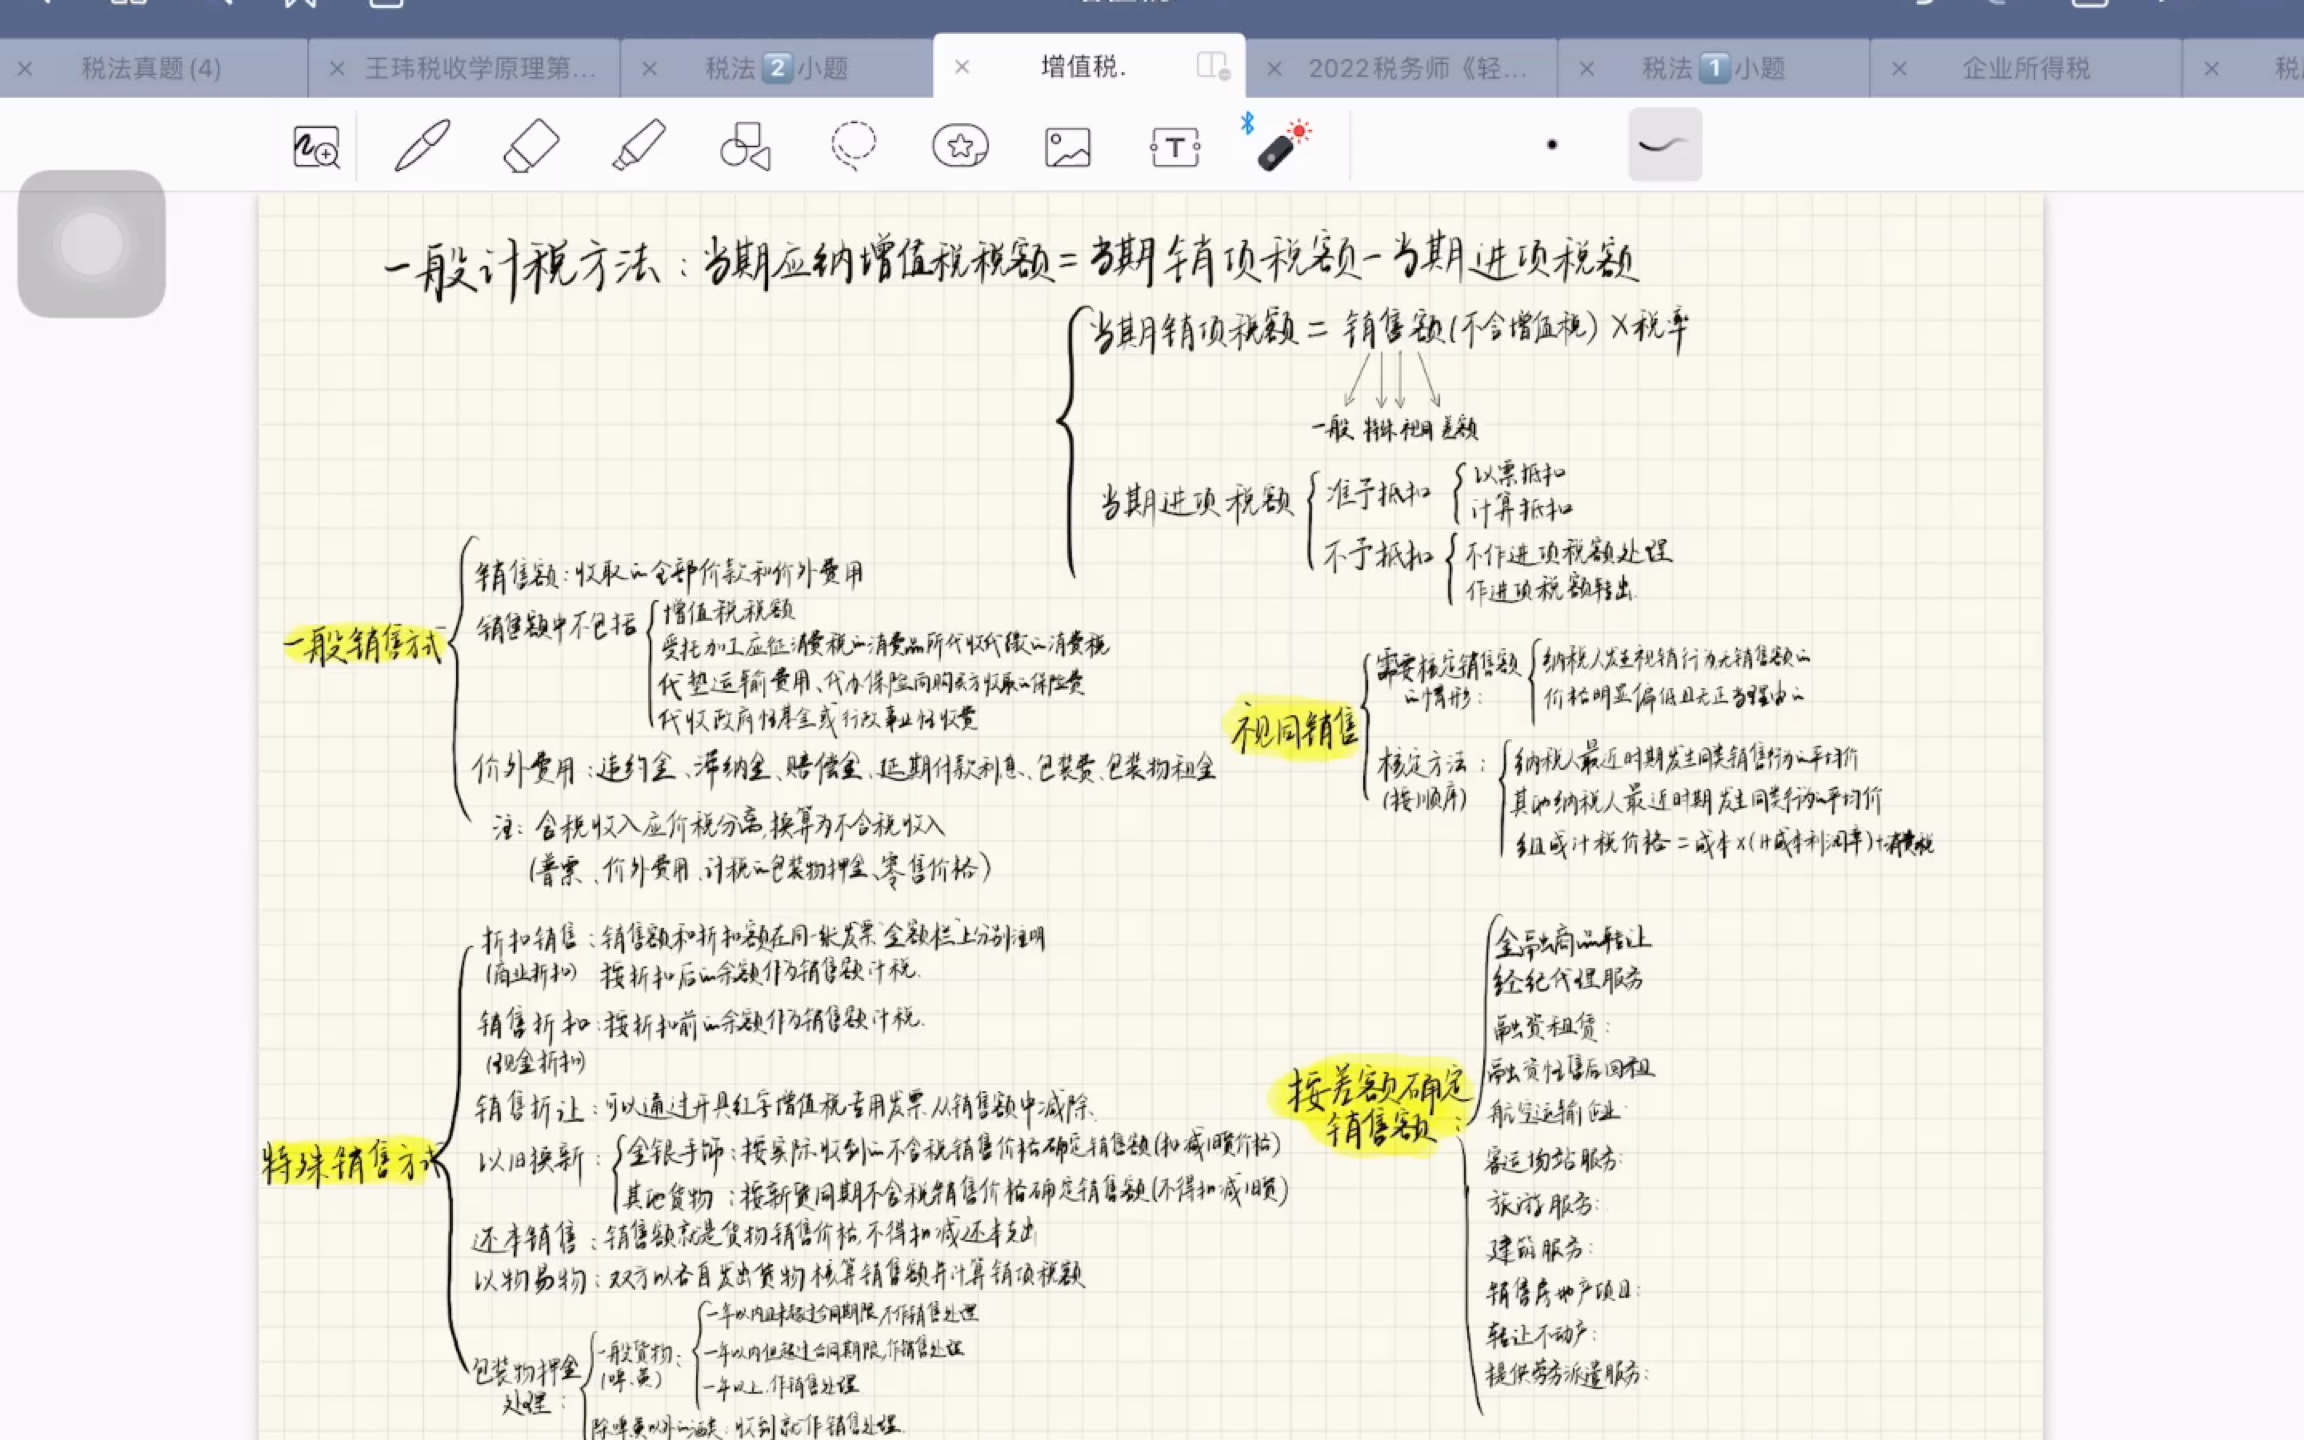 税法真题(4)
王玮税收学原理第...
税法2小题
增值税.
2022税务师《轻...
税法1小题
企业所得税
一般计税方法：当期应纳增值税税额=当期销项税额-当期进项税额
当期销项税额 = 销售额(不含增值税)×税率
一般 特殊 视同 差额
当期进项税额
准予抵扣
以票抵扣
计算抵扣
不予抵扣
不作进项税额处理
作进项税额转出
一般销售方式
销售额：收取的全部价款和价外费用
销售额中不包括
增值税税额
受托加工应征消费税的消费品所代收代缴的消费税
代垫运输费用、代办保险向购买方收取的保险费
代收政府性基金或行政事业性收费
价外费用：违约金、滞纳金、赔偿金、延期付款利息、包装费、包装物租金
注：含税收入应价税分离,换算为不含税收入
(普票、价外费用、计税的包装物押金、零售价格)
视同销售
需要核定销售额
的情形：
纳税人发生视销行为无销售额的
价格明显偏低且无正当理由的
核定方法：
(按顺序)
纳税人最近时期发生同类销售行为的平均价
其他纳税人最近时期发生同类行为的平均价
组成计税价格=成本×(1+成本利润率)+消费税
特殊销售方式
折扣销售：销售额和折扣额在同一张发票"金额栏"上分别注明
(商业折扣) 按折扣后的余额作为销售额计税.
销售折扣：按折扣前的余额作为销售额计税.
(现金折扣)
销售折让：可以通过开具红字增值税专用发票从销售额中减除.
以旧换新：
金银手饰：按实际收到的不含税销售价格确定销售额(扣减旧货价格)
其他货物：按新货同期不含税销售价格确定销售额(不得扣减旧货)
还本销售：销售额就是货物销售价格,不得扣减还本支出
以物易物：双方以各自发出货物核算销售额并计算销项税额
包装物押金
处理：
一般货物：
(啤、黄)
一年以内且未超过合同期限,不作销售处理
一年以内但超过合同期限,作销售处理
一年以上,作销售处理
除啤黄以外的酒类：收到就作销售处理.
按差额确定
销售额：
金融商品转让
经纪代理服务
融资租赁：
融资性售后回租
航空运输企业
客运场站服务：
旅游服务：
建筑服务：
销售房地产项目：
转让不动产：
提供劳务派遣服务：